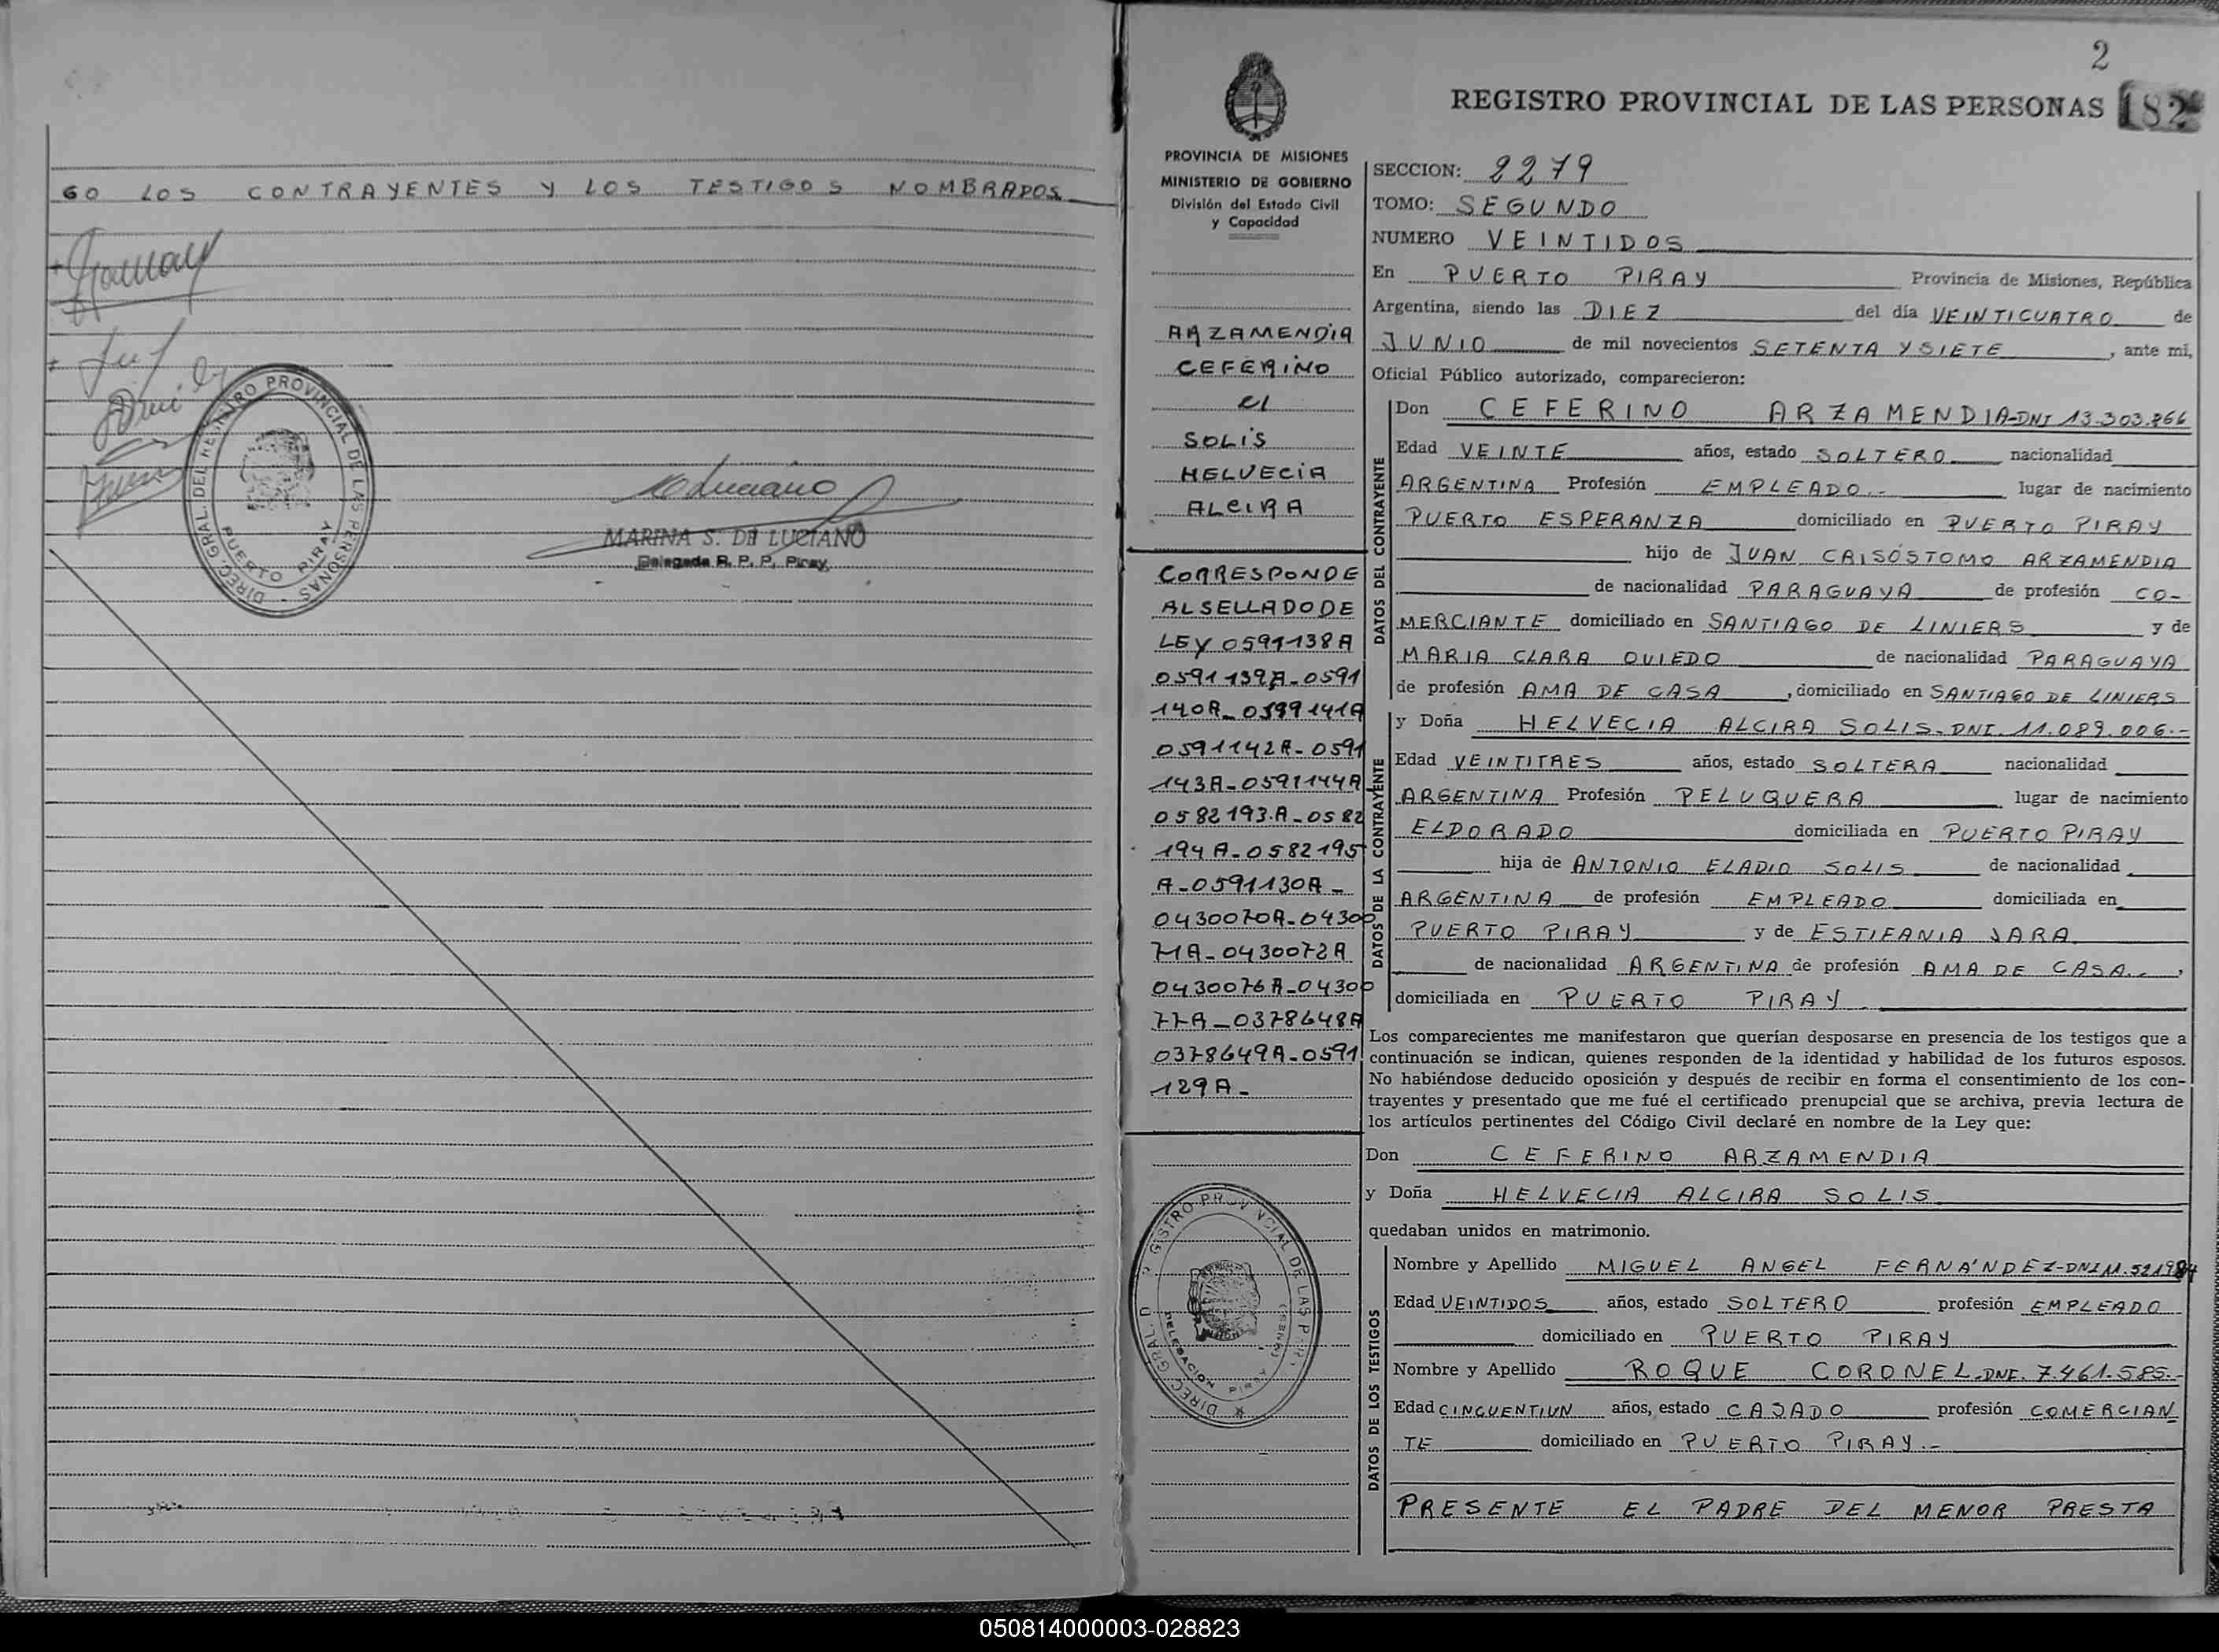 GO LOS CONTRAYENTES Y LOS TESTIGOS NOMBRADOS
DIREC. GRAL. DEL REGISTRO PROVINCIAL DE LAS PERSONAS
PUERTO PIRAY
MARINA S. DE LUCIANO
Delegada R. P. P. Piray
2
REGISTRO PROVINCIAL DE LAS PERSONAS 182
PROVINCIA DE MISIONES
MINISTERIO DE GOBIERNO
División del Estado Civil
y Capacidad
ARZAMENDIA
CEFERINO
C/
SOLIS
HELVECIA
ALCIRA
CORRESPONDE
AL SELLADO DE
LEY 0591138A
0591139A-0591
140A-0599141A
0591142A-0591
143A-0591144A
0582193.A-0582
194A-0582195
A-0591130A-
0430070A-04300
71A-0430072A
0430076A-04300
77A-0378648A
0378649A-0591
129A-
SECCION: 2279
TOMO: SEGUNDO
NUMERO VEINTIDOS
En PUERTO PIRAY Provincia de Misiones, República
Argentina, siendo las DIEZ del día VEINTICUATRO de
JUNIO de mil novecientos SETENTA Y SIETE, ante mi,
Oficial Público autorizado, comparecieron:
DATOS DEL CONTRAYENTE
Don CEFERINO ARZAMENDIA-DNI 13.303.766
Edad VEINTE años, estado SOLTERO nacionalidad
ARGENTINA Profesión EMPLEADO.- lugar de nacimiento
PUERTO ESPERANZA domiciliado en PUERTO PIRAY
hijo de JUAN CRISÓSTOMO ARZAMENDIA
de nacionalidad PARAGUAYA de profesión CO-
MERCIANTE domiciliado en SANTIAGO DE LINIERS y de
MARIA CLARA OVIEDO de nacionalidad PARAGUAYA
de profesión AMA DE CASA, domiciliado en SANTIAGO DE LINIERS
DATOS DE LA CONTRAYENTE
y Doña HELVECIA ALCIRA SOLIS-DNI. 11.089.006.-
Edad VEINTITRES años, estado SOLTERA nacionalidad
ARGENTINA Profesión PELUQUERA lugar de nacimiento
ELDORADO domiciliada en PUERTO PIRAY
hija de ANTONIO ELADIO SOLIS de nacionalidad
ARGENTINA de profesión EMPLEADO domiciliada en
PUERTO PIRAY y de ESTIFANIA JARA
de nacionalidad ARGENTINA de profesión AMA DE CASA.-,
domiciliada en PUERTO PIRAY
Los comparecientes me manifestaron que querían desposarse en presencia de los testigos que a
continuación se indican, quienes responden de la identidad y habilidad de los futuros esposos.
No habiéndose deducido oposición y después de recibir en forma el consentimiento de los con-
trayentes y presentado que me fué el certificado prenupcial que se archiva, previa lectura de
los artículos pertinentes del Código Civil declaré en nombre de la Ley que:
Don CEFERINO ARZAMENDIA
y Doña HELVECIA ALCIRA SOLIS
quedaban unidos en matrimonio.
DATOS DE LOS TESTIGOS
Nombre y Apellido MIGUEL ANGEL FERNÁNDEZ-DNI 11.521984
Edad VEINTIDOS años, estado SOLTERO profesión EMPLEADO
domiciliado en PUERTO PIRAY
Nombre y Apellido ROQUE CORONEL-DNE. 7.461.585.-
Edad CINCUENTIUN años, estado CASADO profesión COMERCIAN
TE domiciliado en PUERTO PIRAY.-
PRESENTE EL PADRE DEL MENOR PRESTA
DELEGACION PIRAY
050814000003-028823